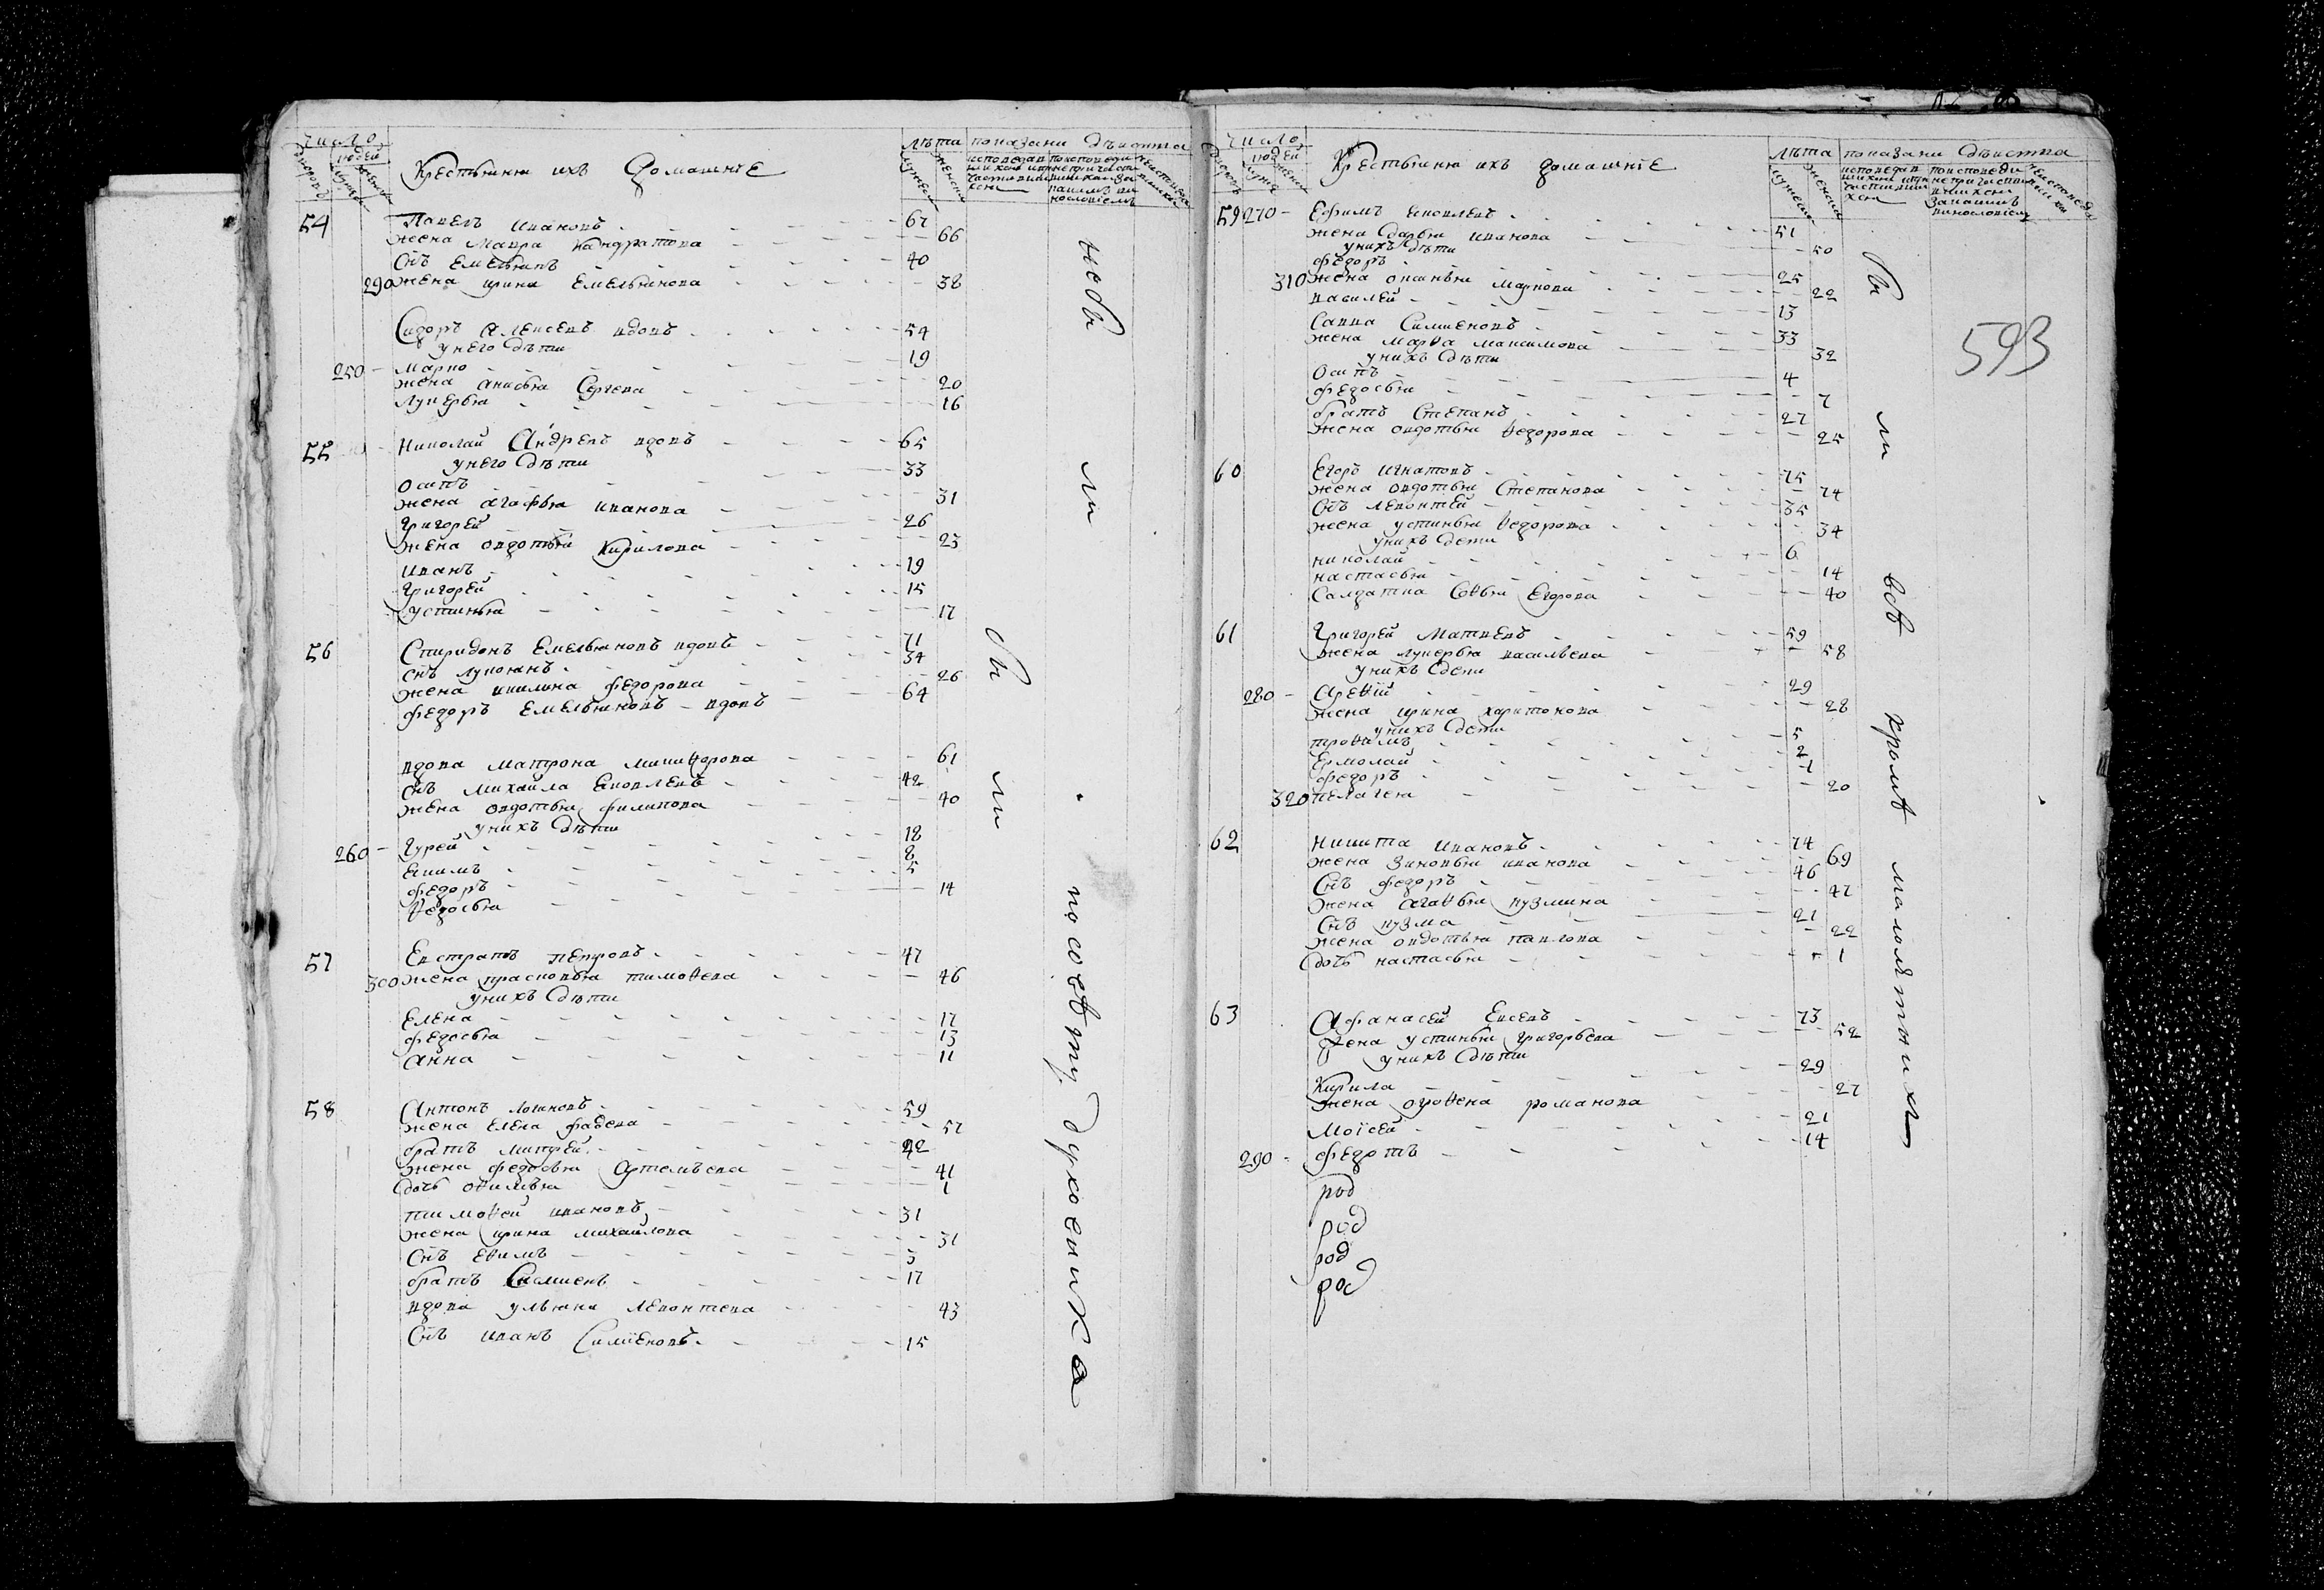 число
людей
Крестьяня ихъ домашнiе
лѣта показани дѣиства
54 Павелъ Ивановъ 67
жена Мавра Кандратова 66
Снъ Емельянъ 40
290 жена Ирина Емельянова 38
Сидоръ Алексевъ вдовъ 54
унего дѣти
250 Марко 19
жена Анисья Сергева 20
Лукерья 16
55 Николай Андревъ вдовъ 65
унего дѣти
Осипъ 33
жена Агафья Иванова 31
Григорей 26
жена Овдотья Кирилова 25
Иванъ 19
Григорей 15
Устинья 17
56 Спиридонъ Емельяновъ вдовъ 71
Снъ Лукоянъ 34
жена Федорова 26
Федоръ Емельяновъ вдовъ 64
вдова Матрона Микиѳорова 61
Снъ Михайла Яковлевъ 42
жена Овдотья Филипова 40
унихъ дѣти
260 Гурей 18
Екимъ 8
Федоръ 5
Ѳедосья 14
57 Евстратъ Петровъ 47
300 жена Прасковья Тимоѳева 46
унихъ дѣти
Елена 17
Федосья 13
Анна 11
58 Антонъ 59
жена Елена Фадева 57
братъ Митрей 42
жена Федосья Артемьева 41
дочь Оѳимья 1
Тимоѳей Ивановъ 31
жена Ирина Михайлова 31
Снъ Еѳимъ 3
братъ Симионъ 17
вдова Ульяна Левонтева 43
Снъ Иванъ Симионовъ 15
были
посовѣту духовника
число
людей
Крестьяня ихъ домашнiе
лѣта показани дѣиства
593
59 270 Ефимъ Яковлевъ 51
жена Дарья Иванова 50
унихъ дѣти
Федоръ 25
310 жена Оксинья Маркова 22
Василей 13
Савва Симионовъ 33
жена Марѳа Максимова 32
унихъ дѣти
Осипъ 4
Федосья 7
братъ Степанъ 27
жена Овдотья Ѳедорова 25
60 Егоръ Игнатовъ 75
жена Овдотья Степанова 74
Снъ Левонтей 35
жена Устинья Ѳедорова 34
унихъ дети
Николай 6
Настасья 14
Салдатка Соѳья Егорова 40
61 Григорей Матвевъ 59
жена Лукерья Васильева 58
унихъ дети
280 Ареѳiй 29
жена Ирина Харитонова 28
унихъ дети
Троѳимъ 5
Ермолай 2
Федоръ 1
320 Пелагея 20
62 Никита Ивановъ 74
жена Зиновья Иванова 69
Снъ Федоръ 46
жена Агаѳья Кузмина 47
Снъ Кузма 21
жена Овдотья Павлова 22
дочь Настасья 1
63 Афанасей Евсевъ 73
жена Устинья Григорьева 52
унихъ дѣти
Кирила 29
жена Оѳроѳена Романова 27
Моiсей 21
290 Федотъ 14
род
род
род
род
были всѣ кромѣ малолѣтнихъ